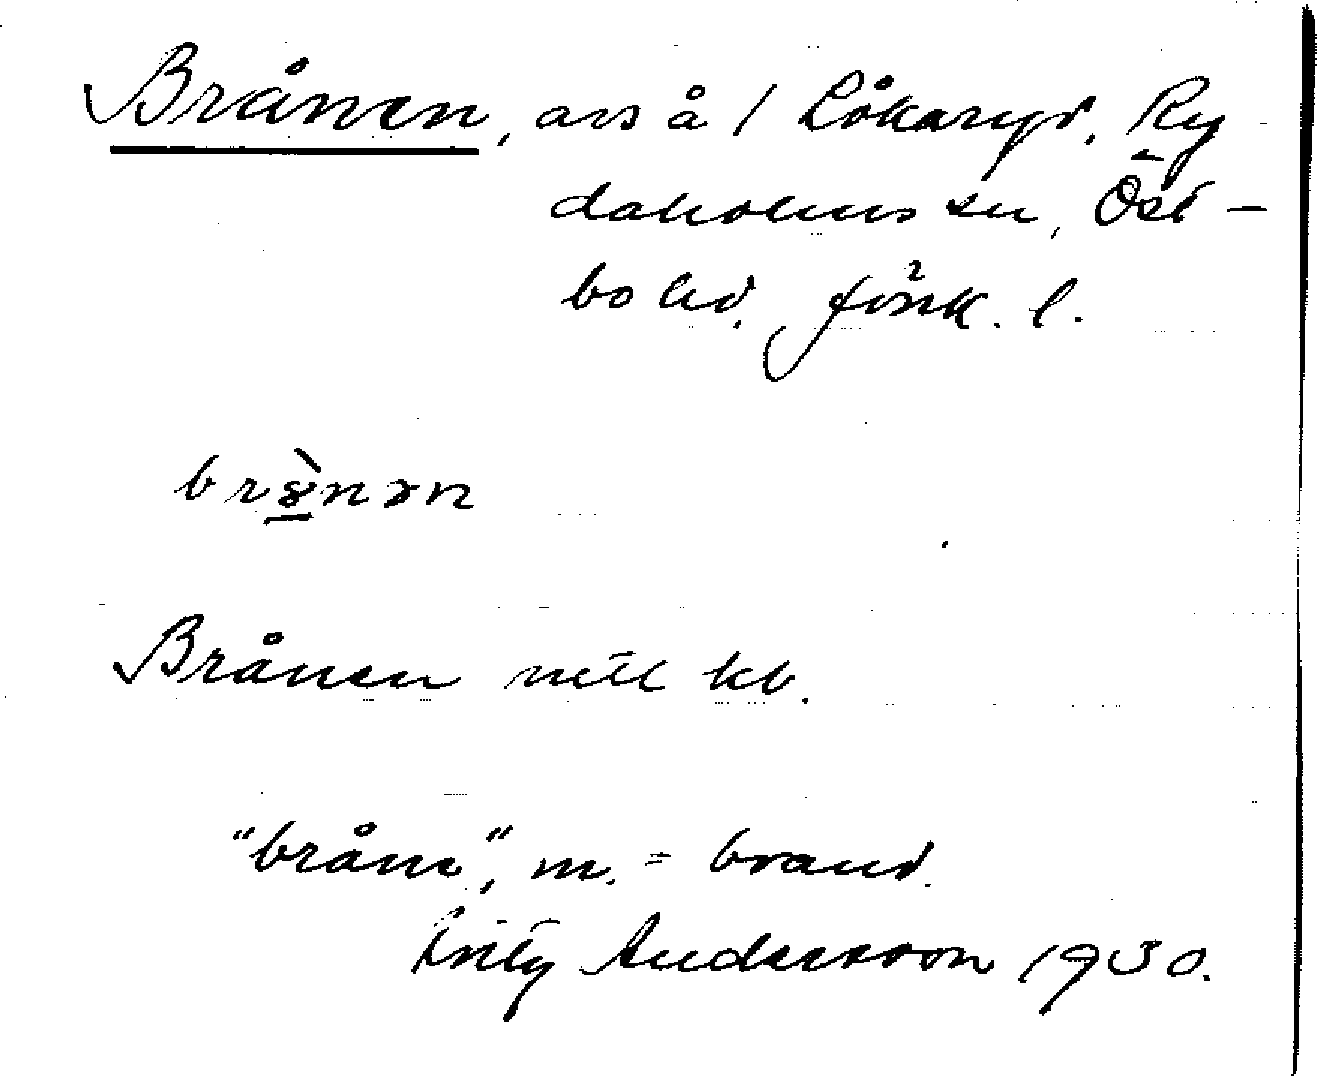 Brånen, avs å 1 Låkaryd, Ry-
daholms sn, Öst-
bo hd, Jönk. l.
brånən
Brånen nell kb.
"bråne", m. = brand.
Fritz Andersson 1930.